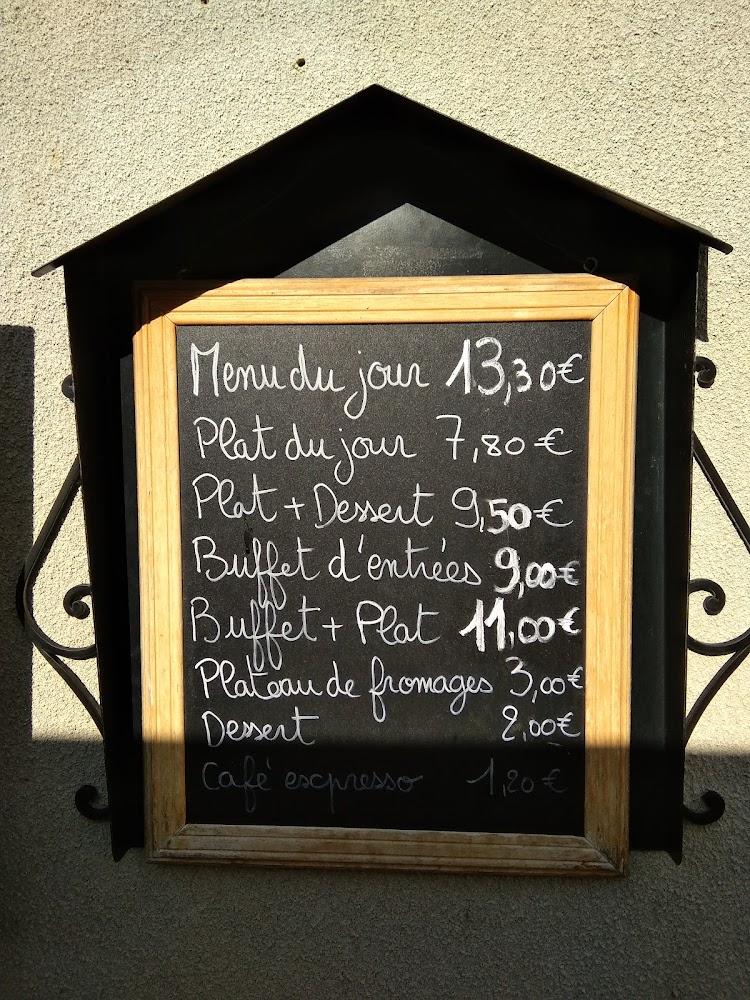 Menu du jour 13,30€
Plat du jour 7,80€
Plat + Dessert 9,50€
Buffet d'entrées 9,00€
Buffet + Plat 11,00€
Plateau de fromages 3,00€
Dessert 2,00€
Café escpresso 1,20€